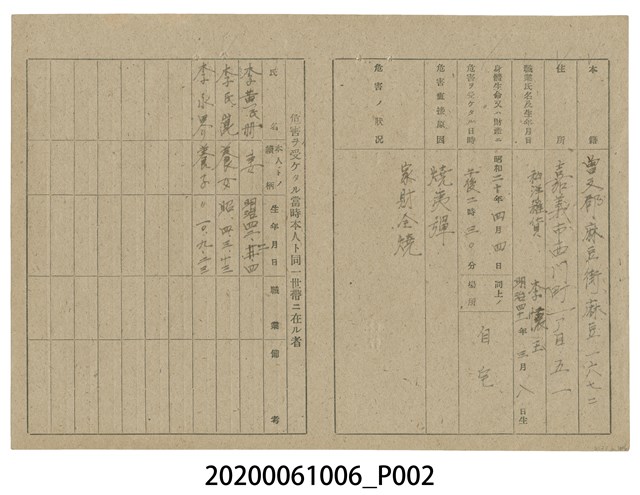 本籍 曽文郡麻豆街麻豆一六七二
住所 嘉義市西門町一丁目五一
職業氏名及生年月日 和洋雜貨 李 玉 明治四十 年三月八日生
身體生命又ハ財產ニ危害ヲ受ケタル日時 昭和二十年四月四日 午後二時三〇分
同上ノ場所 自宅
危害直接原因 燒夷彈
危害ノ狀況 家財全燒
危害ヲ受ケタル當時本人ト同一世帶ニ在ル者
氏名 本人トノ續柄 生年月日 職業 備考
李黃氏 妻 明治四
李氏 養女 昭、四、三、十三
李 養子 〃 一〇、九、二三
20200061006_P002